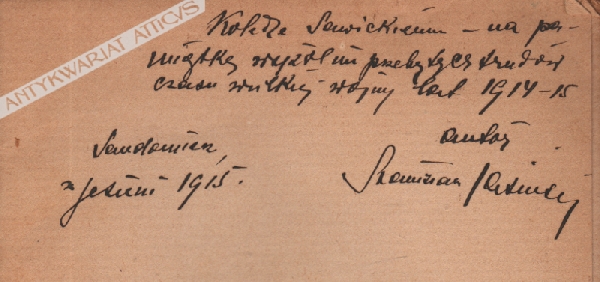 ANTYKWARIAT ATTICVS
Koledze Sawickiemu – na pa-
miątkę wspólnie przebytych trudów
czasu wielkiej wojny lat 1914-15
autor
Sandomierz,
w jesieni 1915.
Stanisław